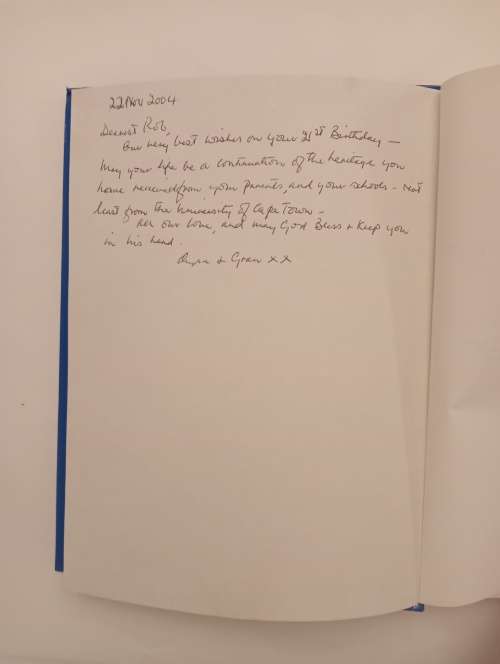 22 Nov 2004
Dearest Rob,
Our very best wishes on your 21st Birthday —
May your life be a continuation of the heritage you
have received from your parents, and your schools - not
least from the University of Cape Town -
All our love, and may God Bless + Keep you
in his hand.
+ Gran x x